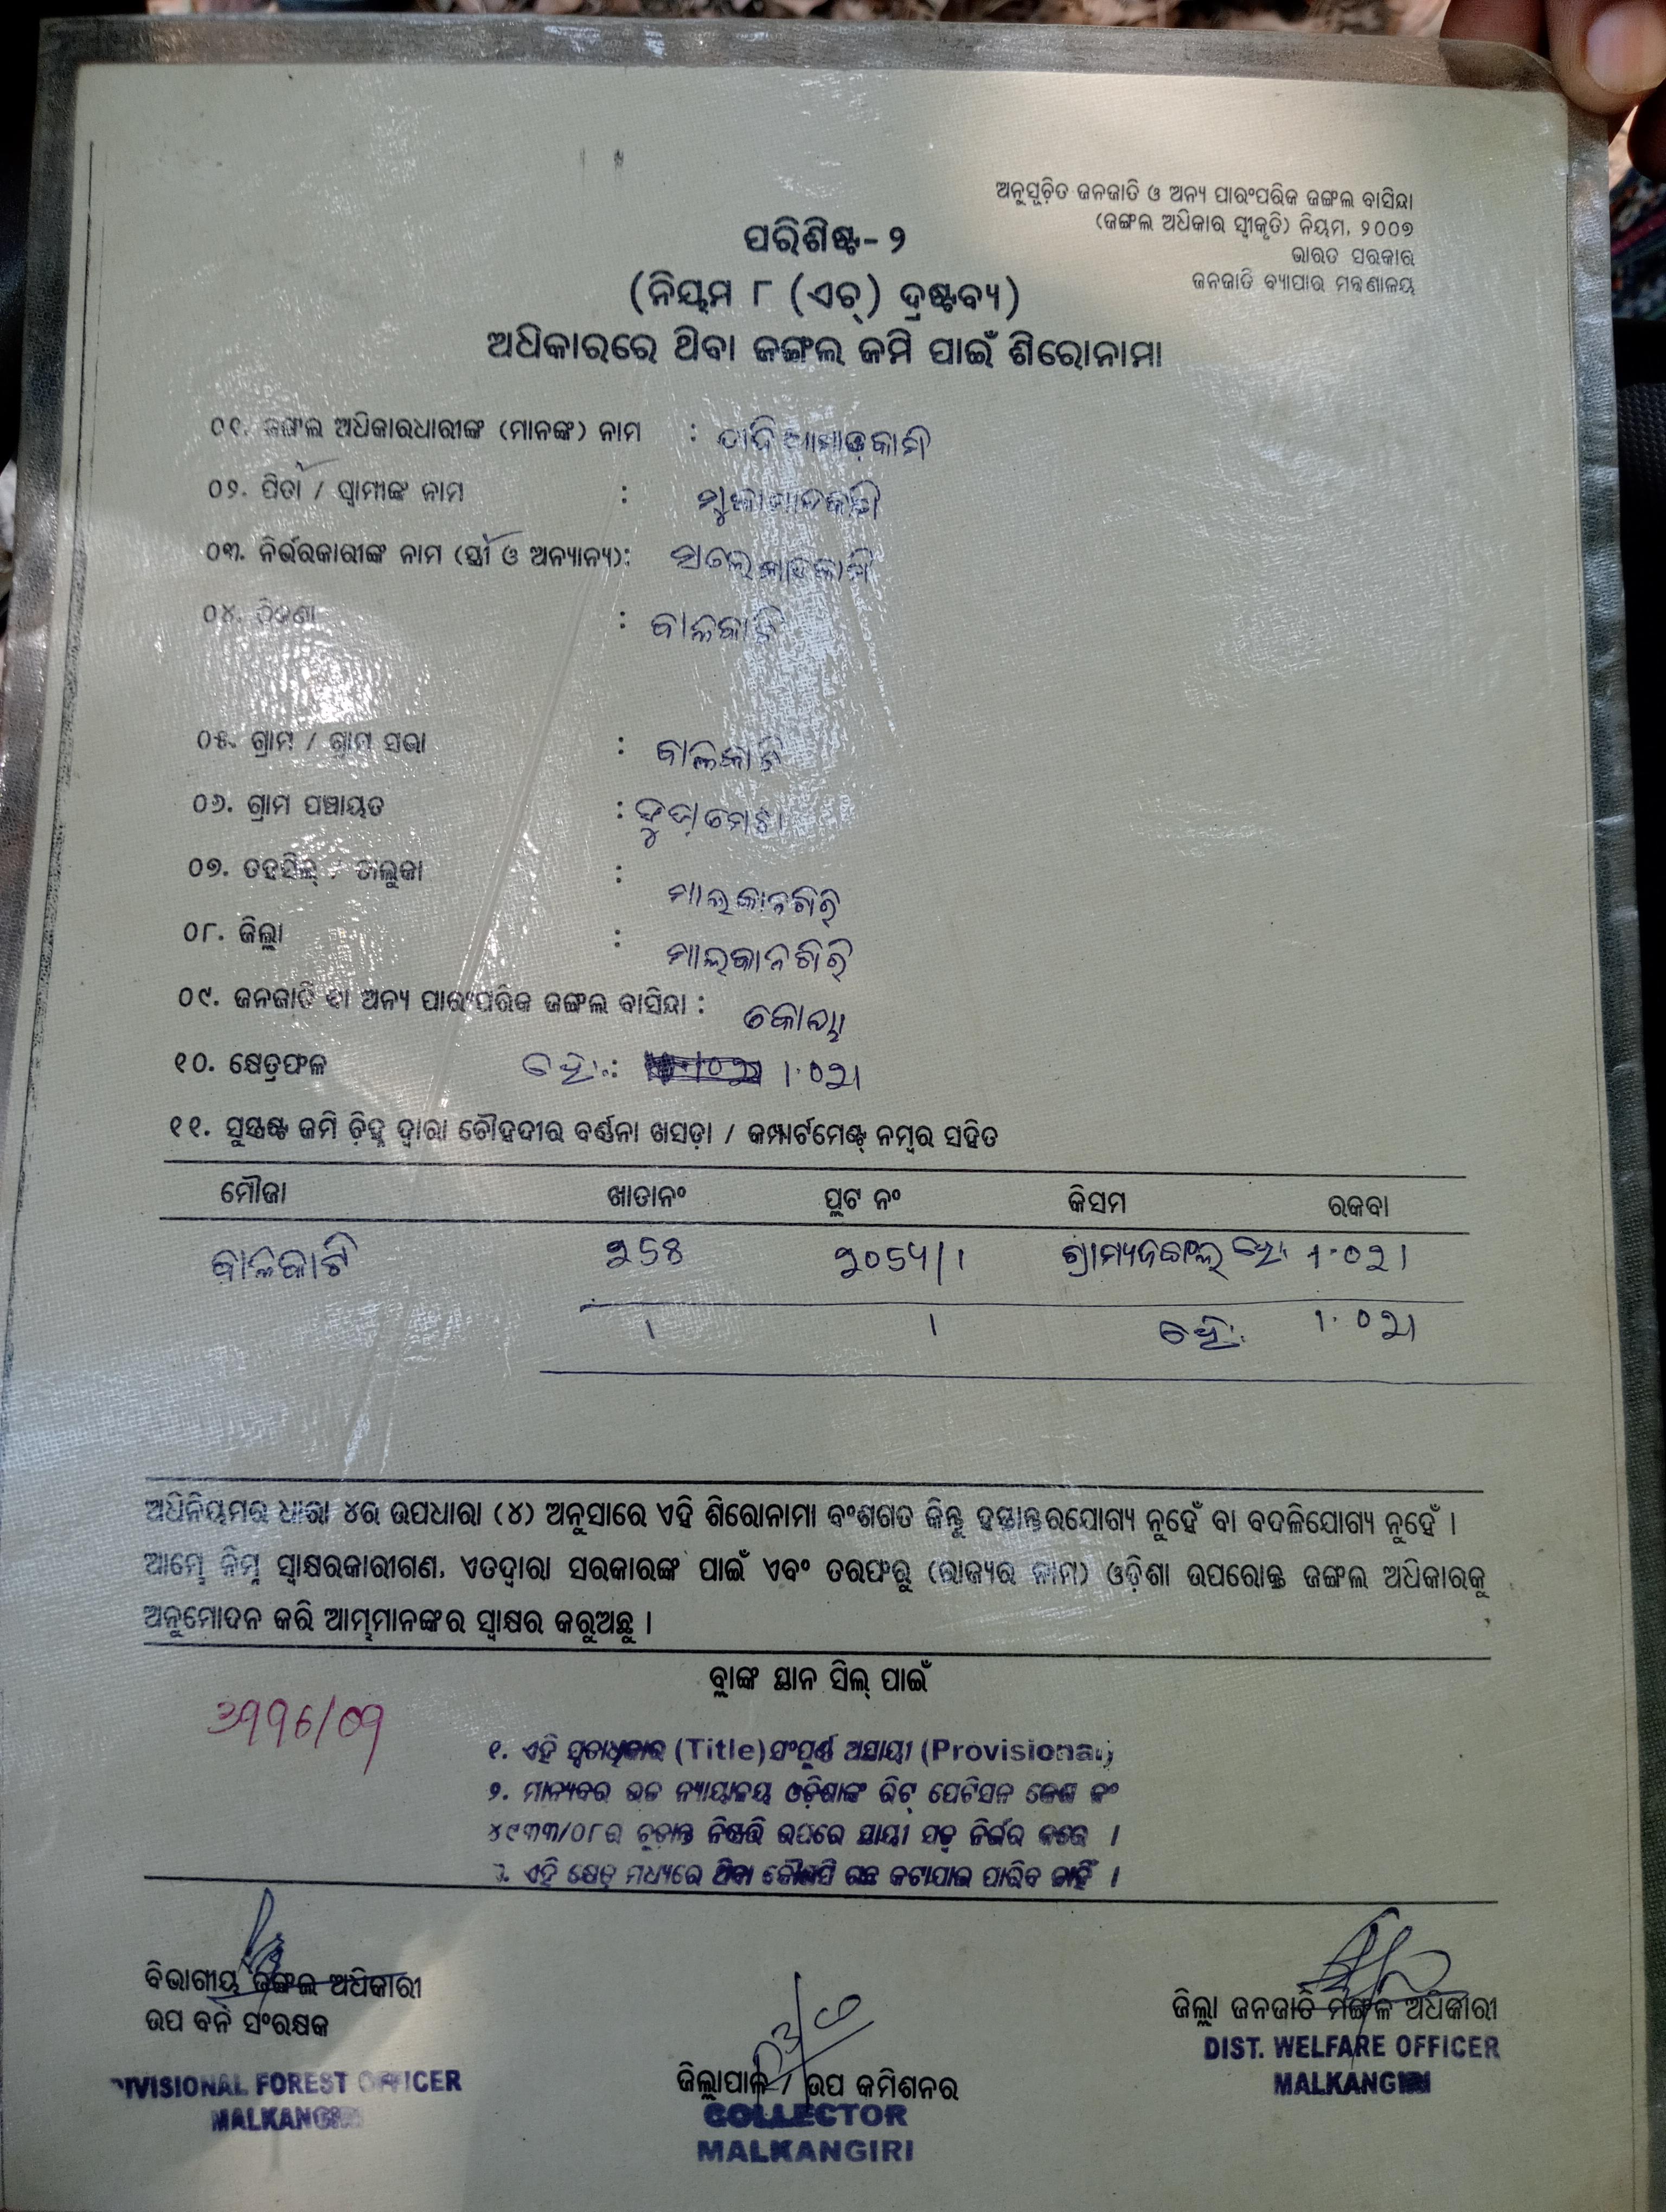 ଅନୁସୂଚିତ ଜନଜାତି ଓ ଅନ୍ୟ ପାରଂପରିକ ଜଙ୍ଗଲ ବାସିନ୍ଦା
(ଜଙ୍ଗଲ ଅଧିକାର ସ୍ୱୀକୃତି) ନିୟମ, ୨୦୦୭
ଭାରତ ସରକାର
ଜନଜାତି ବ୍ୟାପାର ମନ୍ତ୍ରଣାଳୟ
ପରିଶିଷ୍ଟ-୨
(ନିୟମ ୮ (ଏଚ୍) ଦ୍ରଷ୍ଟବ୍ୟ)
ଅଧିକାରରେ ଥିବା ଜଙ୍ଗଲ ଜମି ପାଇଁ ଶିରୋନାମା
୦୧. ଜଙ୍ଗଲ ଅଧିକାରଧାରୀଙ୍କ (ମାନଙ୍କ) ନାମ :
୦୨. ପିତା / ସ୍ୱାମୀଙ୍କ ନାମ :
୦୩. ନିର୍ଭରକାରୀଙ୍କ ନାମ (ସ୍ତ୍ରୀ ଓ ଅନ୍ୟାନ୍ୟ) :
୦୪. ଠିକଣା : ବାଳିକାଟି
୦୫. ଗ୍ରାମ / ଗ୍ରାମ ସଭା : ବାଳିକାଟି
୦୬. ଗ୍ରାମ ପଞ୍ଚାୟତ :
୦୭. ତହସିଲ୍ / ତାଲୁକା : ମାଲକାନଗିରି
୦୮. ଜିଲ୍ଲା : ମାଲକାନଗିରି
୦୯. ଜନଜାତି ବା ଅନ୍ୟ ପାରଂପରିକ ଜଙ୍ଗଲ ବାସିନ୍ଦା : କୋୟା
୧୦. କ୍ଷେତ୍ରଫଳ ହେ: : 1.021
୧୧. ସୁସ୍ପଷ୍ଟ ଜମି ଚିହ୍ନ ଦ୍ୱାରା ଚୌହଦୀର ବର୍ଣ୍ଣନା ଖସଡ଼ା / କମ୍ପାର୍ଟମେଣ୍ଟ ନମ୍ବର ସହିତ
ମୌଜା ଖାତାନଂ ପ୍ଲଟ ନଂ କିସମ ରକବା
ବାଳିକାଟି 258 ଗ୍ରାମ୍ୟଜଙ୍ଗଲ୍ ହେ: 1.021
1 1 ହେ: 1.021
ଅଧିନିୟମର ଧାରା ୪ର ଉପଧାରା (୪) ଅନୁସାରେ ଏହି ଶିରୋନାମା ବଂଶଗତ କିନ୍ତୁ ହସ୍ତାନ୍ତରଯୋଗ୍ୟ ନୁହେଁ ବା ବଦଳିଯୋଗ୍ୟ ନୁହେଁ ।
ଆମ୍ଭେ ନିମ୍ନ ସ୍ୱାକ୍ଷରକାରୀଗଣ, ଏତଦ୍ୱାରା ସରକାରଙ୍କ ପାଇଁ ଏବଂ ତରଫରୁ (ରାଜ୍ୟର ନାମ) ଓଡ଼ିଶା ଉପରୋକ୍ତ ଜଙ୍ଗଲ ଅଧିକାରକୁ
ଅନୁମୋଦନ କରି ଆମ୍ଭମାନଙ୍କର ସ୍ୱାକ୍ଷର କରୁଅଛୁ ।
ବ୍ଲାଙ୍କ ସ୍ଥାନ ସିଲ୍ ପାଇଁ
୧. ଏହି (Title) ସଂପୂର୍ଣ୍ଣ ଅସ୍ଥାୟୀ (Provisional)
୨. ମାନ୍ୟବର ଉଚ୍ଚ ନ୍ୟାୟାଳୟ ଓଡ଼ିଶାଙ୍କ ରିଟ୍ ପେଟିସନ କେଶ ନଂ
୪୯୩୩/୦୮ର ଚୂଡ଼ାନ୍ତ ନିଷ୍ପତ୍ତି ଉପରେ ସ୍ଥାୟୀ ସତ୍ୱ ନିର୍ଭର କରେ ।
୩. ଏହି କ୍ଷେତ୍ର ମଧ୍ୟରେ ଥିବା କୌଣସି ଗଛ କଟାଯାଇ ପାରିବ ନାହିଁ ।
ବିଭାଗୀୟ ଜଙ୍ଗଲ ଅଧିକାରୀ
ଉପ ବନ ସଂରକ୍ଷକ
DIVISIONAL FOREST OFFICER
MALKANGIRI
ଜିଲ୍ଲାପାଳ / ଉପ କମିଶନର
COLLECTOR
MALKANGIRI
ଜିଲ୍ଲା ଜନଜାତି ମଙ୍ଗଳ ଅଧିକାରୀ
DIST. WELFARE OFFICER
MALKANGIRI